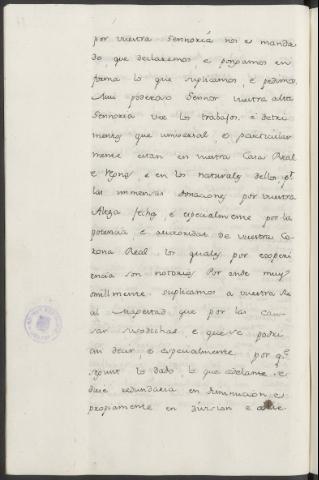 por vuestra Sennoria nos es manda
do que declaremos e pongamos en
forma lo que suplicamos, e pedimos
Mui poderoso Sennor vuestra alta
Sennoria vee los trabajos, e detri
mentos que universal, e particular
mente estan en vuestra Casa Real
e Regnos e en los naturales dellos pr
las inmensas donaciones por vuestra
Alteza fechas e especialmente por la
potencia, e autoridat de vuestra Co-
rona Real, lo quales por experi
encia son notorios Por ende muy
omillmente suplicamos a vuestra Re
al Magestad que por las cau
sas susodichas e que se podri
an decir e especialmente por qe
segunt lo dado, lo que adelante se
diese redundaria en diminucion e
propiamente en division e